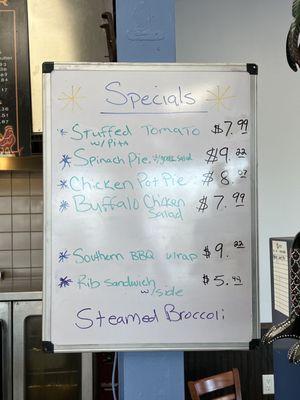 Specials
Stuffed Tomato $7.99
w/ Pita
Spinach Pie w/ greek salad $9.22
Chicken Pot Pie $8.
Buffalo Chicken $7.99
Salad
Southern BBQ wrap $9.22
Rib sandwich $5.49
w/ side
Steamed Broccoli